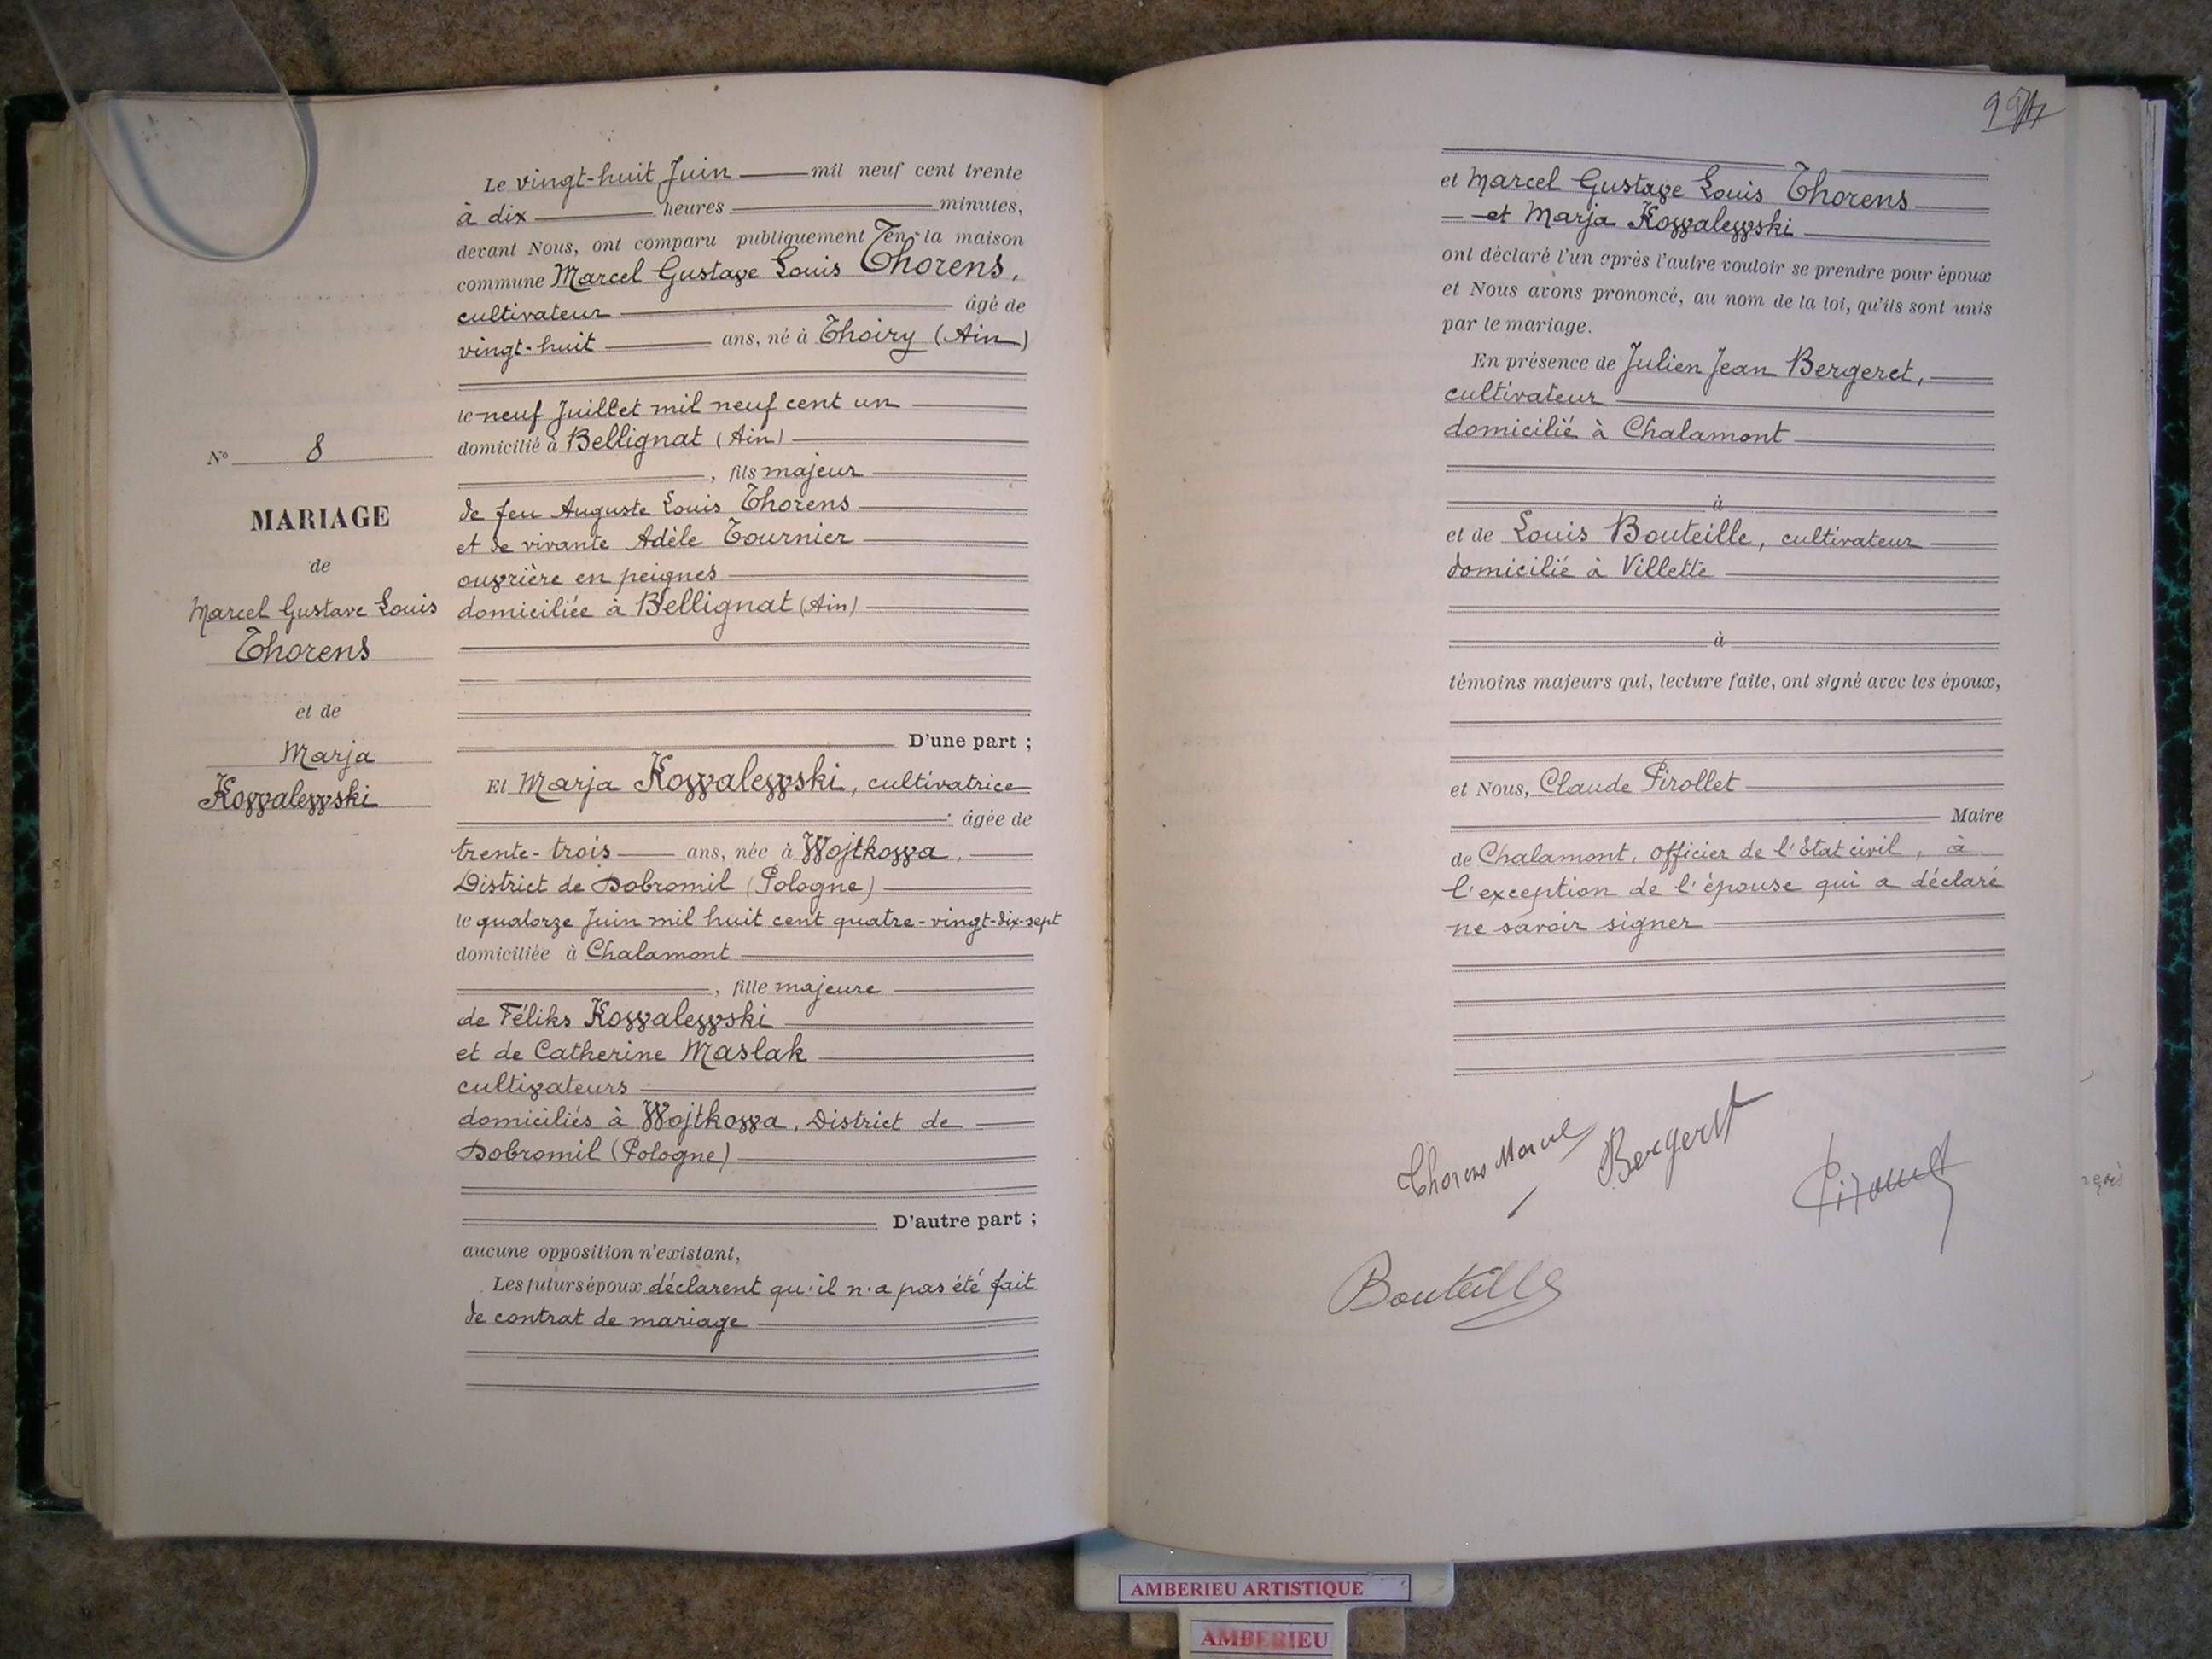 Le vingt-huit Juin mil neuf cent trente
à dix heures minutes,
devant Nous, ont comparu publiquement en la maison
commune Marcel Gustave Louis Thorens,
cultivateur âgé de
vingt-huit ans, né à Thoiry (Ain)
le neuf Juillet mil neuf cent un
domicilié à Bellignat (Ain)
, fils majeur
de feu Auguste Louis Thorens
et de vivante Adèle Tournier
ouvrière en peignes
domiciliée à Bellignat (Ain)
D'une part ;
Et Marja Kowalewski, cultivatrice
âgée de
trente-trois ans, née à Wojtkowa,
District de Dobromil (Pologne)
le quatorze Juin mil huit cent quatre-vingt-dix-sept
domiciliée à Chalamont
, fille majeure
de Féliks Kowalewski
et de Catherine Maslak
cultivateurs
domiciliés à Wojtkowa, District de
Dobromil (Pologne)
D'autre part ;
aucune opposition n'existant,
Les futurs époux déclarent qu'il n'a pas été fait
de contrat de mariage
N° 8
MARIAGE
de
Marcel Gustave Louis
Thorens
et de
Marja
Kowalewski
et Marcel Gustave Louis Thorens
et Marja Kowalewski
ont déclaré l'un après l'autre vouloir se prendre pour époux
et Nous avons prononcé, au nom de la loi, qu'ils sont unis
par le mariage.
En présence de Julien Jean Bergeret,
cultivateur
domicilié à Chalamont
à
et de Louis Bouteille, cultivateur
domicilié à Villette
à
témoins majeurs qui, lecture faite, ont signé avec les époux,
et Nous, Claude Pirollet
Maire
de Chalamont, Officier de l'Etat civil, à
l'exception de l'épouse qui a déclaré
ne savoir signer
Thorens Marcel
Bergeret
Pirollet
Bouteille
AMBERIEU ARTISTIQUE
AMBERIEU